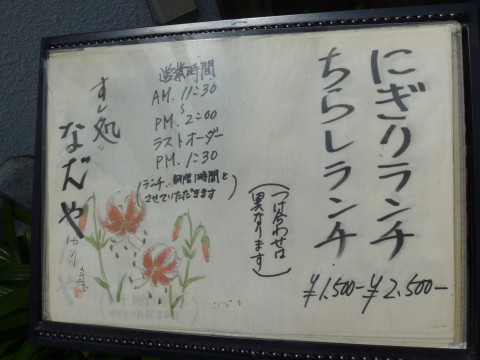 にぎりランチ
ちらしランチ
¥1.500-¥2.500-
(つけ合わせは
異なります)
営業時間
AM. 11:30
~
PM. 2:00
ラストオーダー
PM. 1:30
(ランチ、制限1時間と
させていただきます)
すし処
なだや